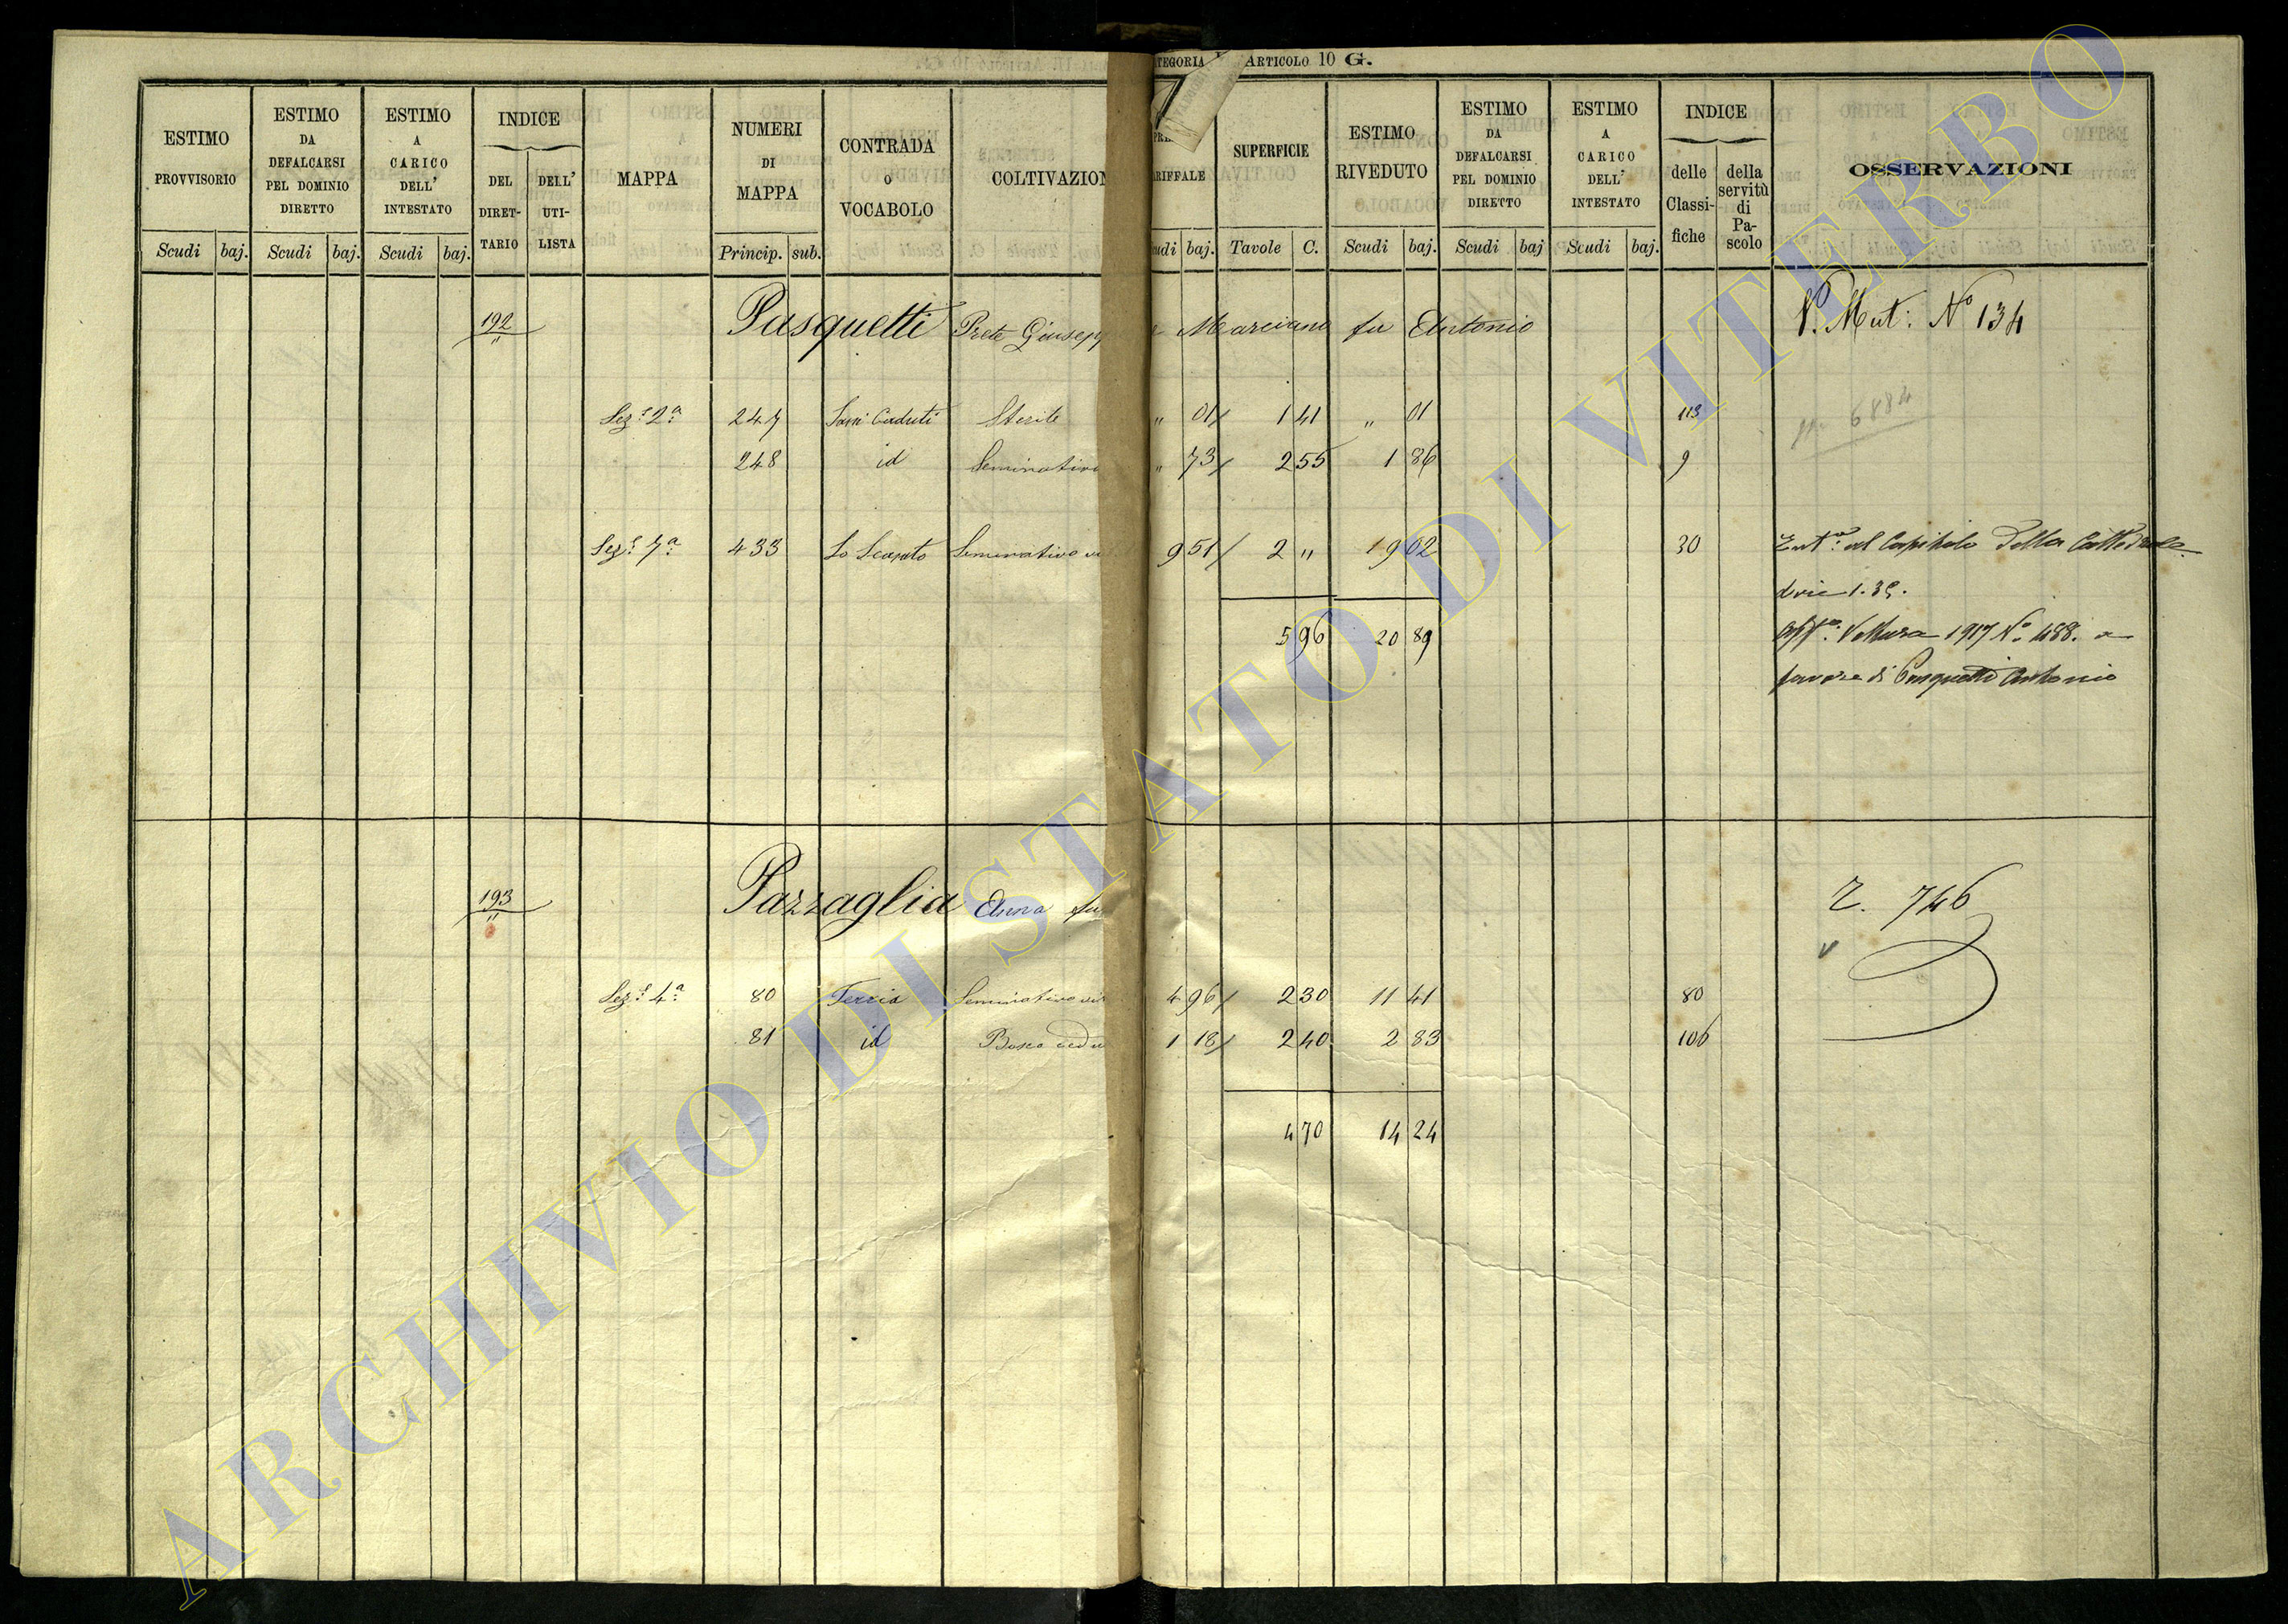 CATEGORIA ARTICOLO 10 G.
ESTIMO PROVVISORIO
ESTIMO DA DEFALCARSI PEL DOMINIO DIRETTO
ESTIMO A CARICO DELL' INTESTATO
INDICE
DEL DIRET-TARIO
DELL' UTI-LISTA
MAPPA
NUMERI DI MAPPA
CONTRADA O VOCABOLO
COLTIVAZION
ARIFFALE
SUPERFICIE
ESTIMO RIVEDUTO
ESTIMO DA DEFALCARSI PEL DOMINIO DIRETTO
ESTIMO A CARICO DELL' INTESTATO
INDICE
delle Classi-fiche
della servitù di Pa-scolo
OSSERVAZIONI
Scudi baj. Scudi baj. Scudi baj. Princip. sub. udi baj. Tavole C. Scudi baj. Scudi baj Scudi baj.
192 Pasquetti Prete Giusepp e Marciano fu Antonio V. Mut: N° 134
Sez: 2ª 247 Sterile " 01 1 41 " 01 113
248 id Seminativo " 73 2 55 1 86 9
6884
Sez: 7ª 433 Lo Scopeto Seminativo vi 9 51 2 " 19 02 30 al Capitolo della Cattedrale
1.35.
5 96 20 89 Voltura 1917 N° 488. a
favore di Pasquetti Antonio
193 Pazzaglia Anna fu 746
Sez: 4ª 80 Terria Seminativo vi 4 96 2 30 11 41 80
81 id Bosco cedu 1 18 2 40 2 83 106
4 70 14 24
ARCHIVIO DI STATO DI VITERBO